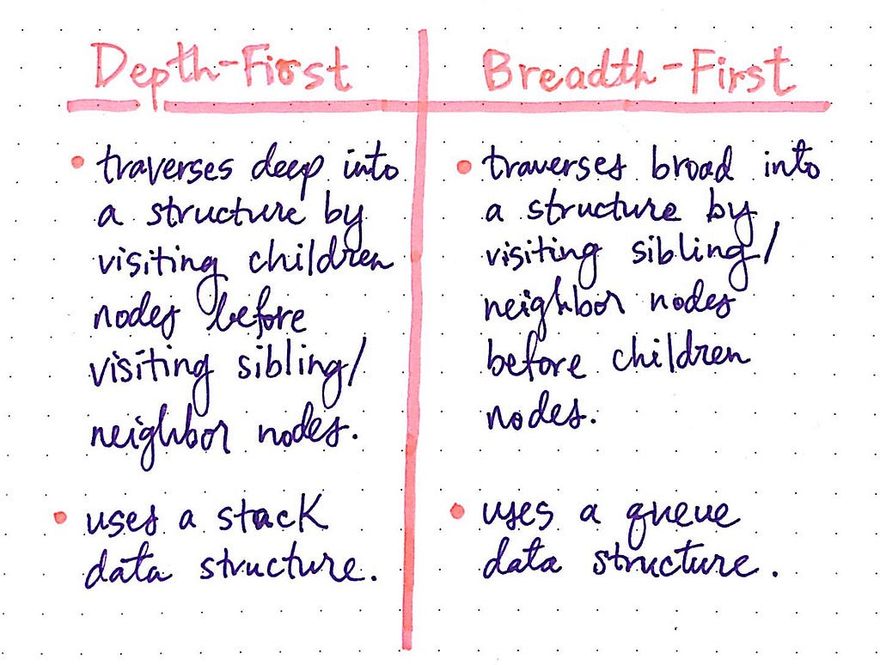 Depth-First
• traverses deep into
a structure by
visiting children
nodes before
visiting sibling/
neighbor nodes.
• uses a stack
data structure.
Breadth-First
• traverses broad into
a structure by
visiting sibling/
neighbor nodes
before children
nodes.
• uses a queue
data structure.